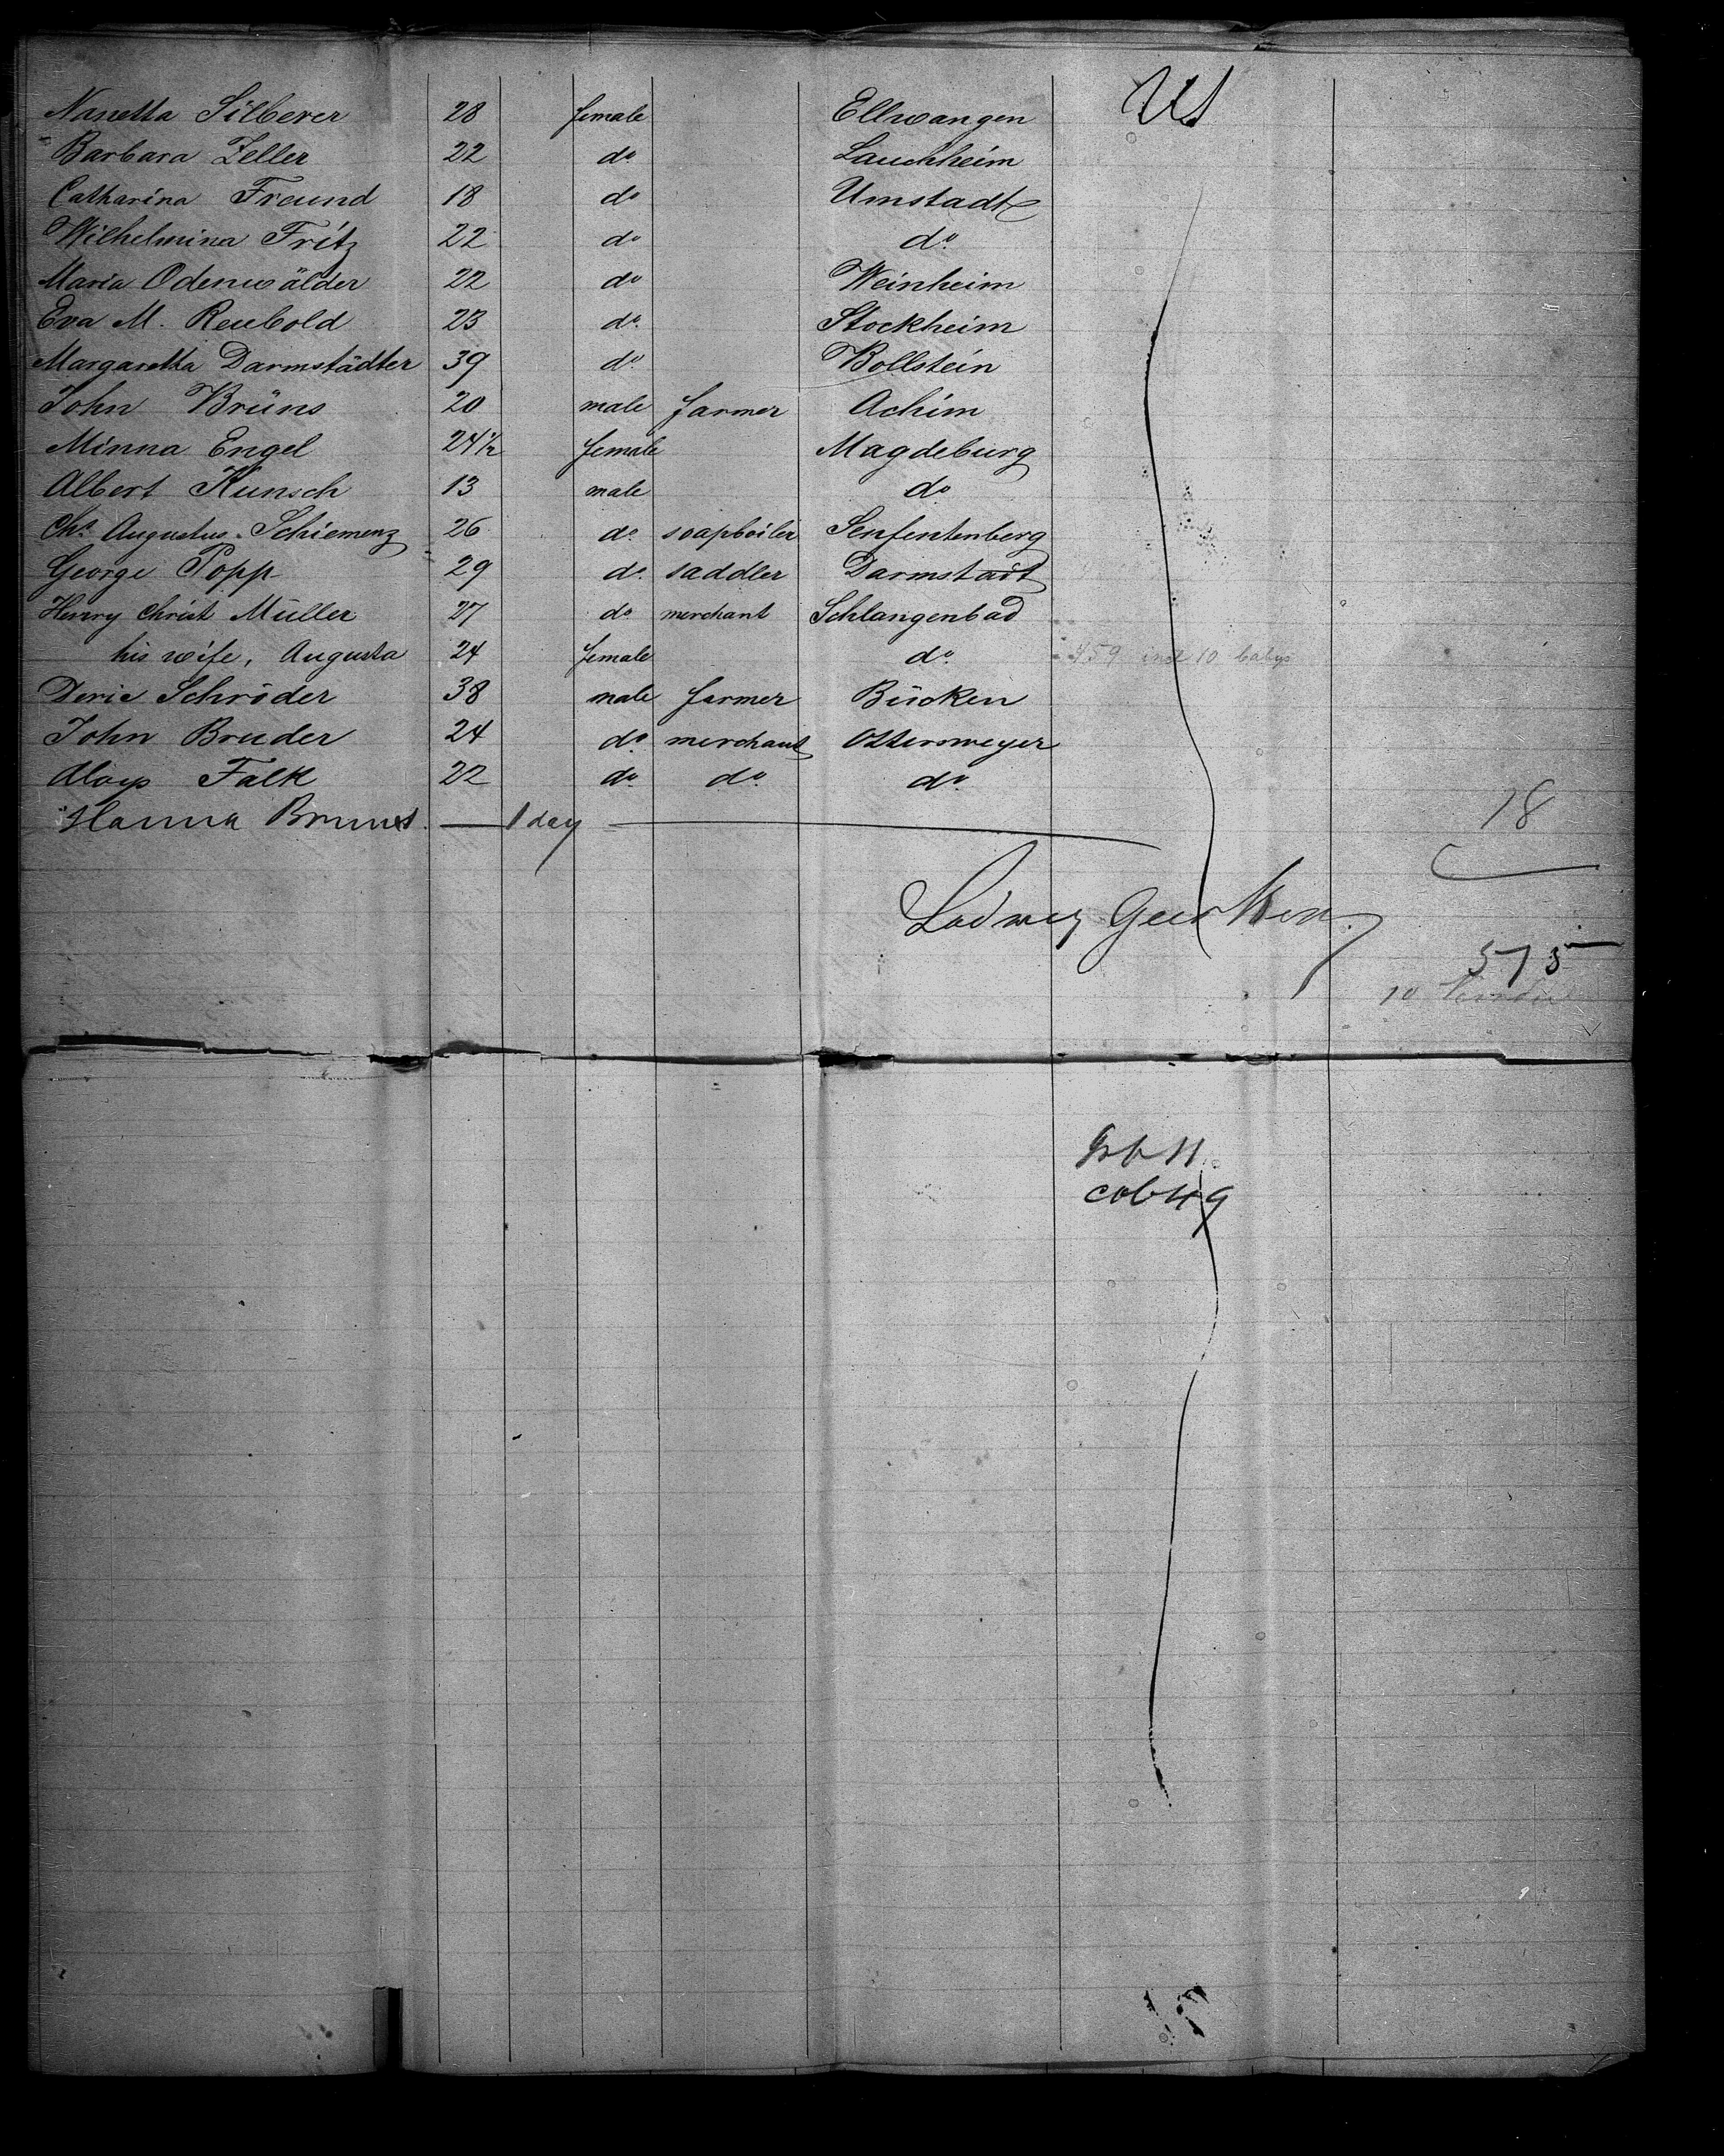 Nanetta Silberer 28 female Ellwangen US
Barbara Zeller 22 do Lauchheim
Catharina Freund 18 do Umstadt
Wilhelmina Fritz 22 do do
Maria Odenwälder 22 do Weinheim
Eva M. Reubold 23 do Stockheim
Margaretha Darmstädter 39 do Bollstein
John Brüns 20 male farmer Achim
Minna Engel 24½ female Magdeburg
Albert Kunsch 13 male do
Chs Augustus Schiemenz 26 do soapboiler Senfentenberg
George Popp 29 do saddler Darmstadt
Henry Christ Müller 27 do merchant Schlangenbad
his wife, Augusta 24 female do 459 incl 10 babys
Deric Schröder 38 male farmer Bücken
John Bruder 24 do merchant Ottersweyer
Aloys Falk 22 do do do
Hanna 1 day 18
Ludwig Geerken
575
10
11
cob 49